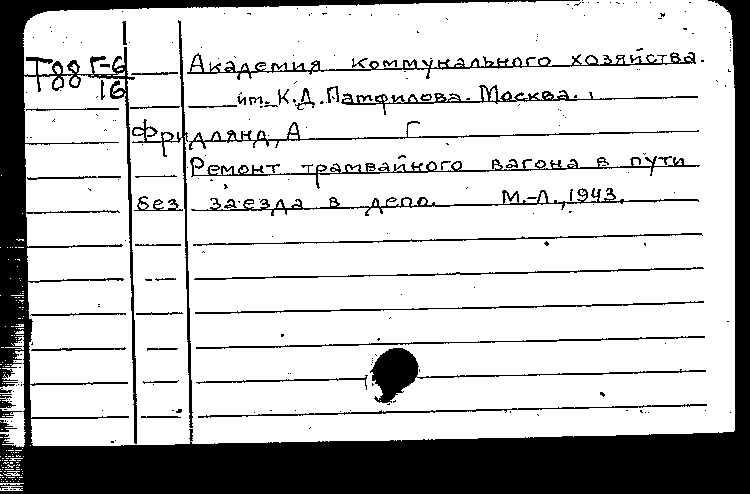 Т88 Г-6
Т88 16
Академия коммунального хозяйства.
им. К.Д. Памфилова. Москва.
Фридлянд, А Г
Ремонт трамвайного вагона в пути
без заезда в депо. М.-Л., 1943.